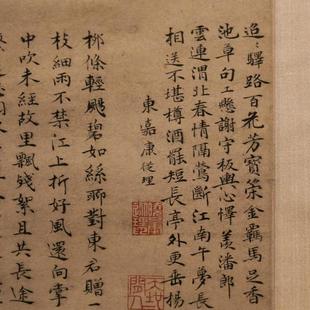 追：驛路百花芳寶策金羈馬足香
池草句工懸謝守板輿心譯羨潘郎
雲連渭北春情隔鶯斷江南午夢長
相送不堪樽酒罷短長亭外更垂楊
東嘉康從理
柳條輕颺碧如絲聊對東君贈一
枝細雨不禁江上折好風還向掌
中吹未經故里飄殘絮且共長途